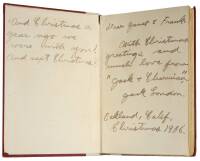 And Christmas a
year ago we
were with you!
And next Christmas
Dear Janet & Frank
With Christmas
greetings and
much love from
"Jack & Charmian"
Jack London
Oakland, Calif,
Christmas 1906.